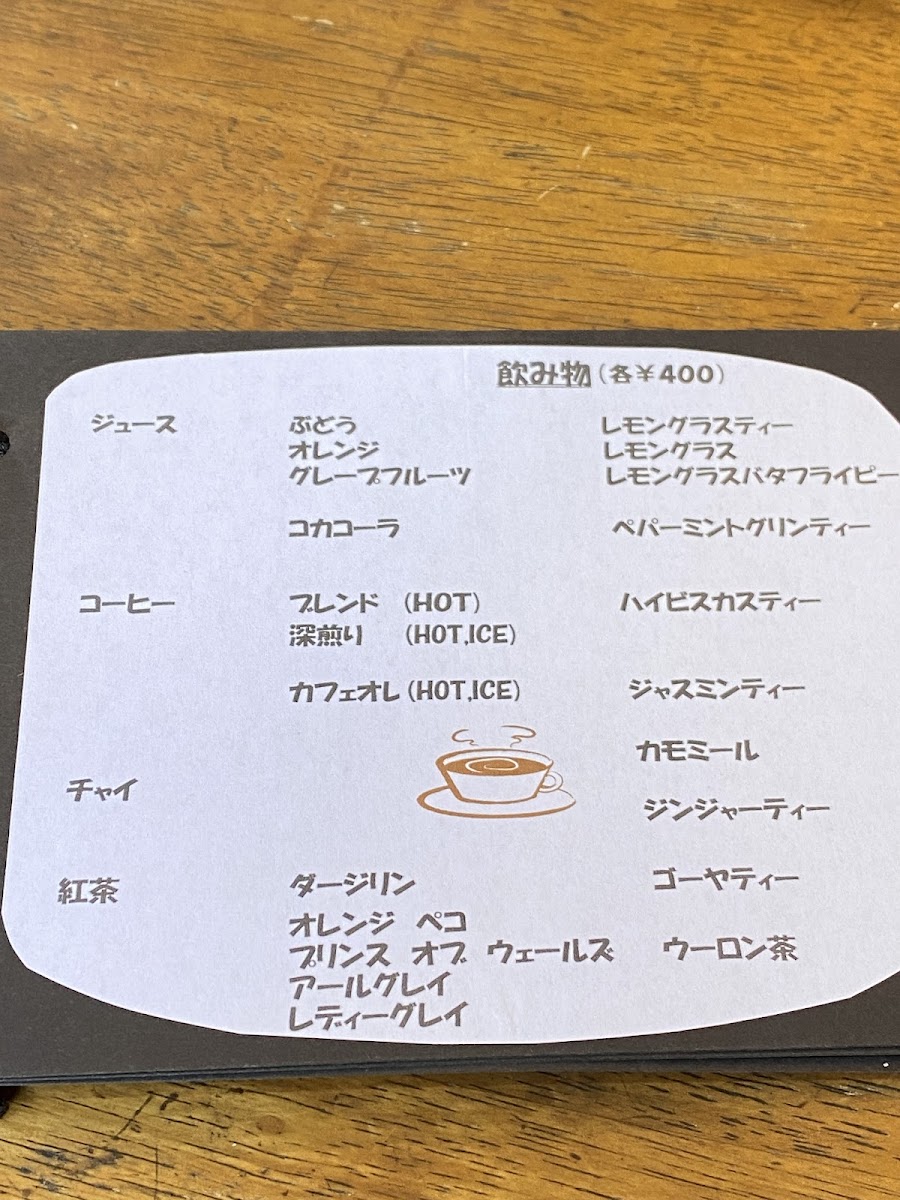 飲み物(各￥400)
ジュース
ぶどう
オレンジ
グレープフルーツ
コカコーラ
コーヒー
ブレンド (HOT)
深煎り (HOT,ICE)
カフェオレ(HOT,ICE)
チャイ
紅茶
ダージリン
オレンジ ペコ
プリンス オブ ウェールズ
アールグレイ
レディーグレイ
レモングラスティー
レモングラス
レモングラスバタフライピー
ペパーミントグリンティー
ハイビスカスティー
ジャスミンティー
カモミール
ジンジャーティー
ゴーヤティー
ウーロン茶